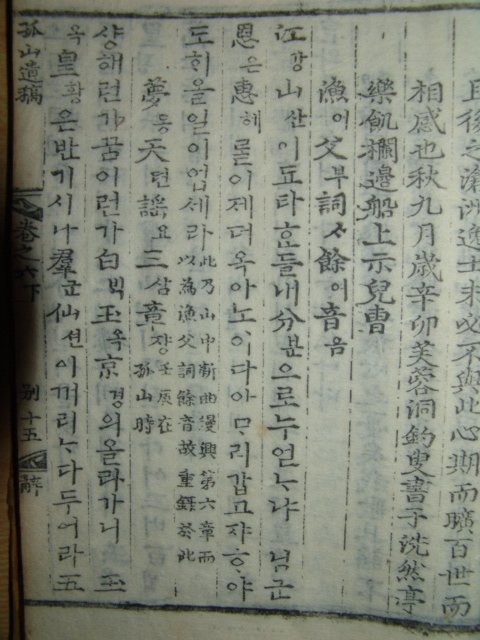 且後之滄洲逸士未必不與此心期而曠百世而
相感也秋九月歲辛卯芙蓉洞釣叟書于洗然亭
樂飢欄邊船上示兒曹
漁어父부詞ᄉᆞ餘여音음
江강山산이됴타ᄒᆞᆫᄃᆞᆯ내分분으로누언ᄂᆞ냐님군
恩은惠혜ᄅᆞᆯ이제더옥아노이다아ᄆᆞ리갑고쟈ᄒᆞ야
도ᄒᆡ올일이업세라此乃山中新曲漫興第六章而
以為漁父詞餘音故重錄於此
夢몽天텬謠요三삼章쟝壬辰在
孤山時
샹해런가ᄭᅮᆷ이런가白ᄇᆡᆨ玉옥京경의올라가니玉
옥皇황은반기시나羣군仙션이ᄭᅥ리ᄂᆞ다두어라五
孤山遺稿 卷之六下 別 十五 辭